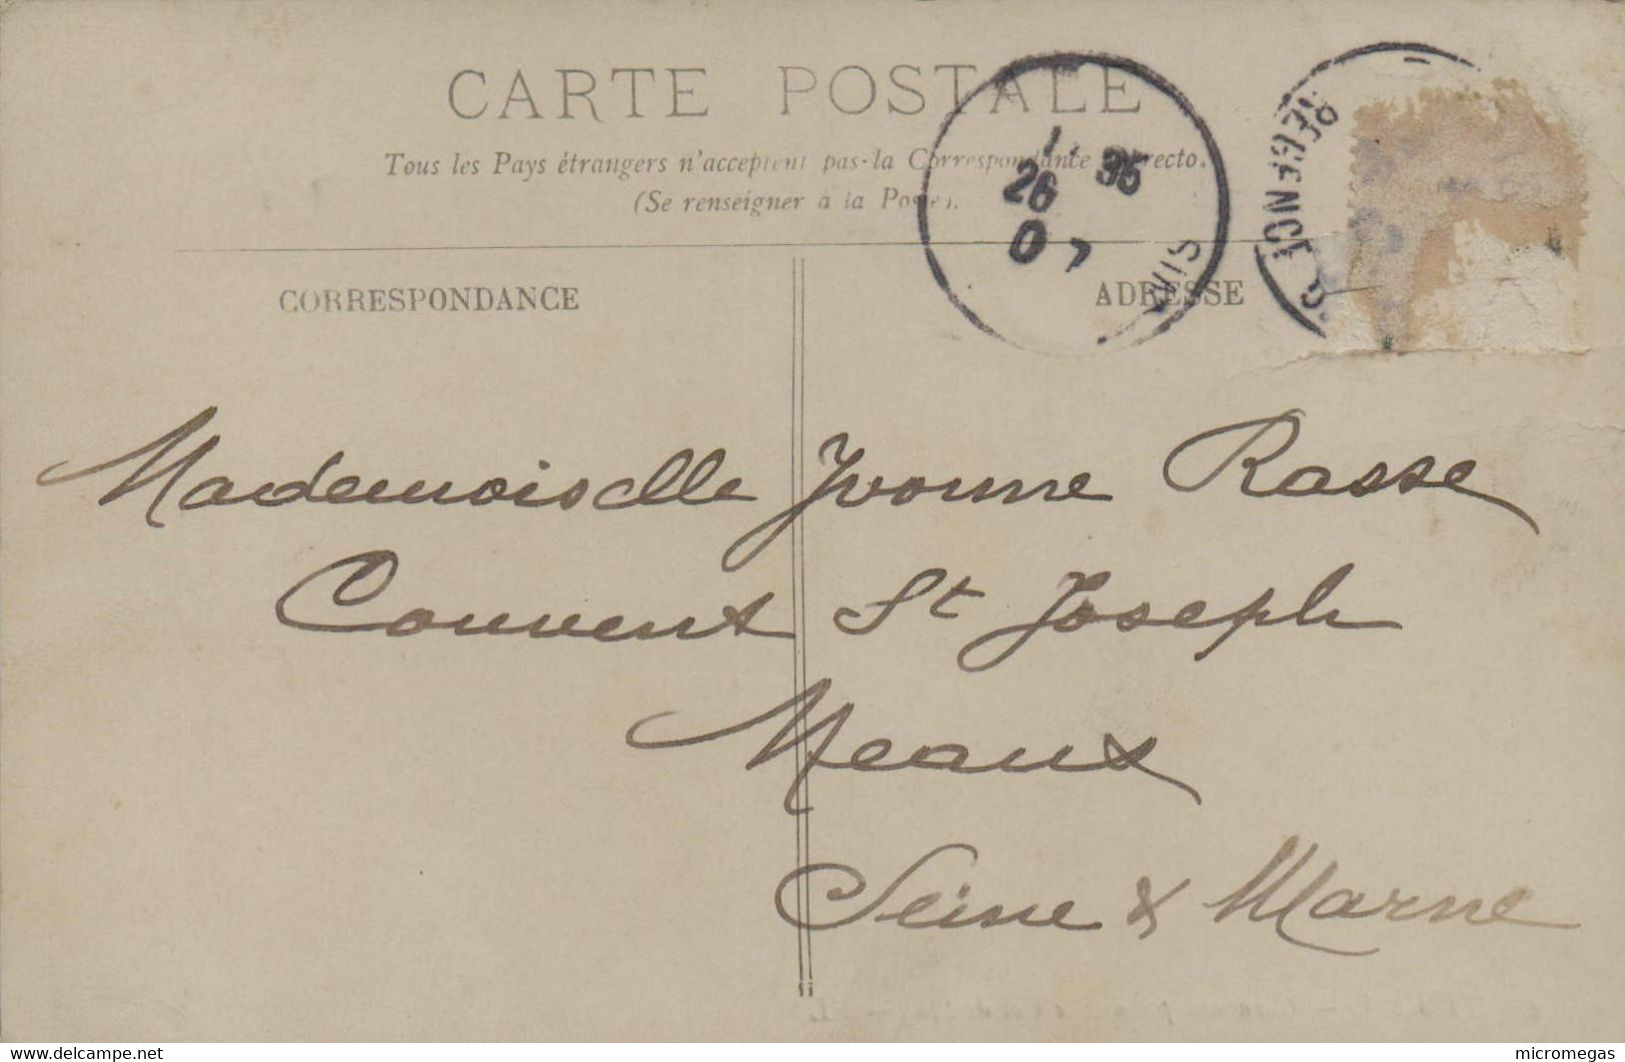 CARTE POSTALE
Tous les Pays étrangers n'acceptent pas la Correspondance recto.
(Se renseigner à la Poste).
35
26
07
REGENCE
CORRESPONDANCE
ADRESSE
Mademoiselle Yvonne Rasse
Couvent St Joseph
Meaux
Seine & Marne
https://www.delcampe.net
micromegas